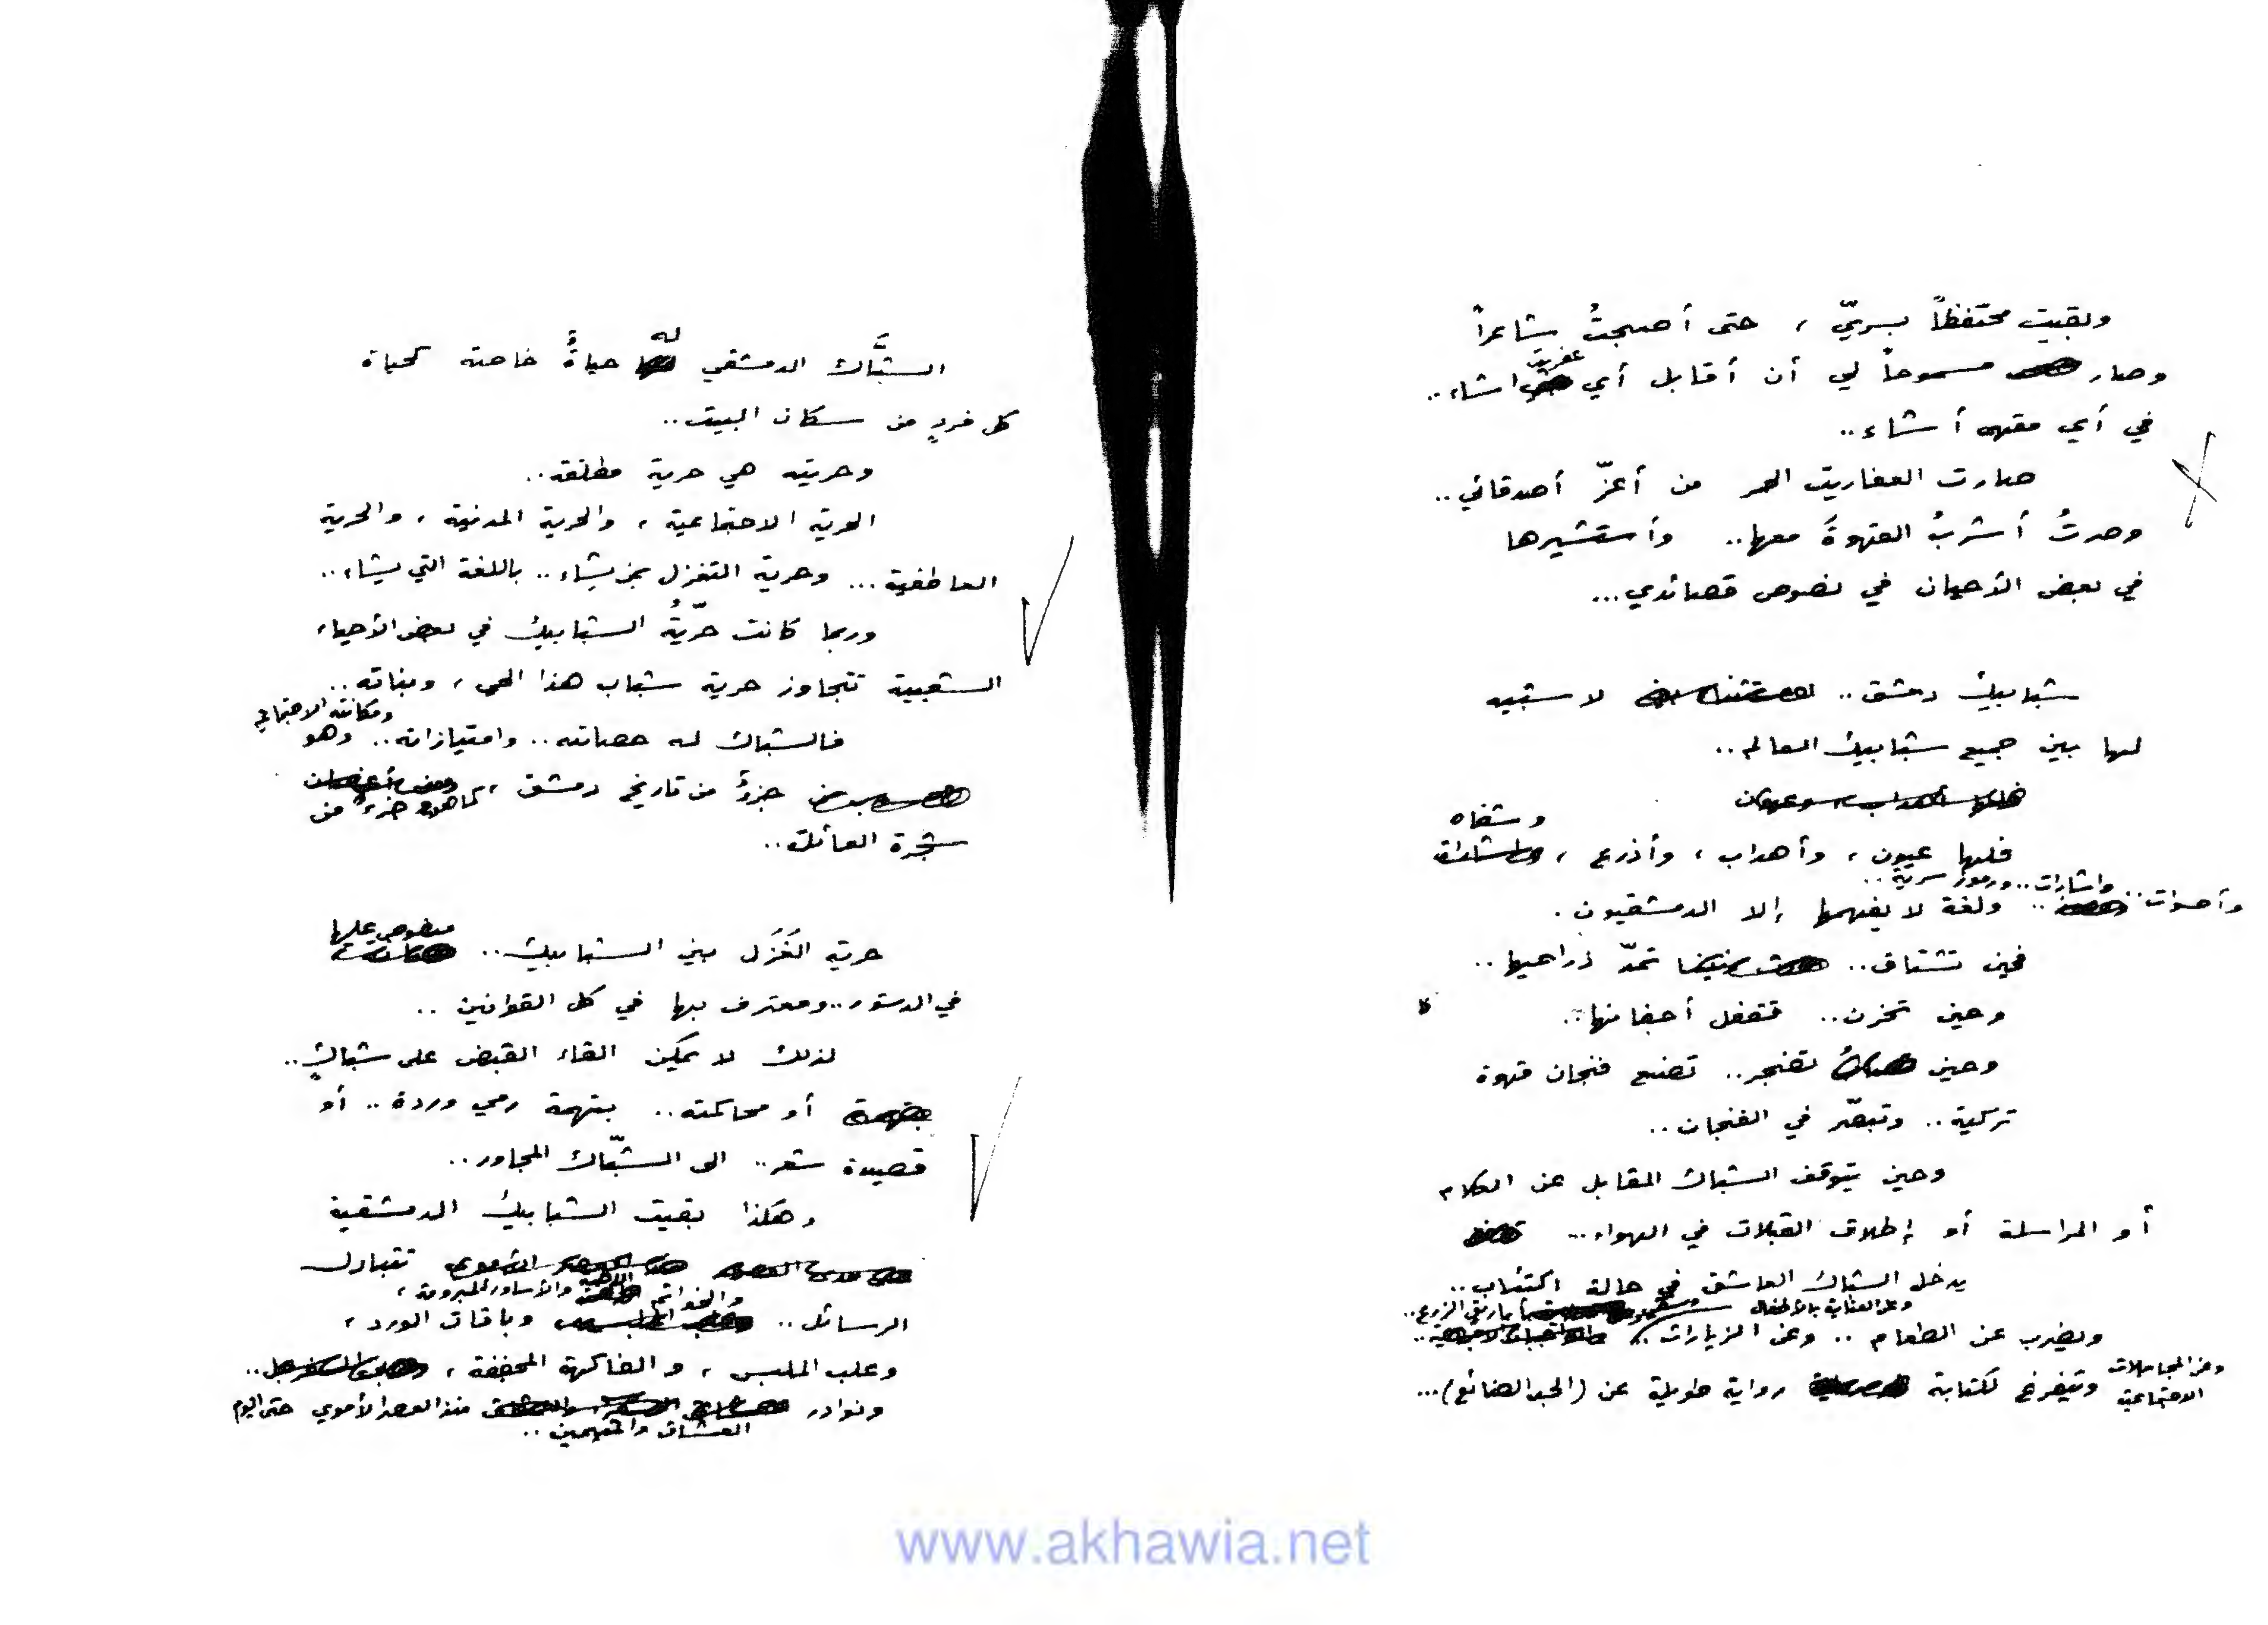 وبقيت محتفظاً بسريّ ، حتى أصبحتُ شاعراً
وصار مسموحاً لي أن أقابل أي عفريت أشاء ..
في أي مقهى أشاء ..
صارت العفاريت الحمر من أعزّ أصدقائي ..
وصرتُ أشربُ القهوةَ معها .. وأستشيرها
في بعض الأحيان في نصوص قصائدي ...
شبابيك دمشق .. لا شبيه
لها بين جميع شبابيك العالم ..
فلها عيون ، وأهداب ، وأذرع ، وشفاه
وأصوات .. وإشارات .. ورموز سرية .. ولغة لا يفهمها إلا الدمشقيون .
فحين تشتاق .. تمدّ ذراعيها ..
وحين تحزن .. تقفل أجفانها ..
وحين تضجر .. تصنع فنجان قهوة
تركية .. وتبصّر في الفنجان ..
وحين يتوقف الشباك المقابل عن الكلام
أو المراسلة أو إطلاق القبلات في الهواء ...
يدخل الشباك العاشق في حالة اكتئاب ..
وعن العناية بالأطفال
ويضرب عن الطعام .. وعن الزيارات ..
وعن المجاملات الاجتماعية
ويتفرغ لكتابة رواية طويلة عن (الحب الضائع) ...
الشبَّاك الدمشقي له حياةٌ خاصة كحياة
كل فردٍ من سكان البيت ..
وحريته هي حرية مطلقة ..
الحرية الاجتماعية ، والحرية المدنية ، والحرية
العاطفية ... وحرية التغزل بمن يشاء .. باللغة التي يشاء ..
وربما كانت حرّيةُ الشبابيك في بعض الأحياء
الشعبية تتجاوز حرية شباب هذا الحي ، وبناته ..
فالشباك له حصانته .. وامتيازاته .. ومكانته الاجتماعية وهو
جزءٌ من تاريخ دمشق ، كما هو جزء من
شجرة العائلة ..
حرية الغَزَل بين الشبابيك .. منصوص عليها
في الدستور .. ومعترف بها في كل القوانين ..
لذلك لا يمكن القاء القبض على شباكٍ ..
أو محاكمته .. بتهمة رمي وردة .. أو
قصيدة شعر .. الى الشبّاك المجاور ..
وهكذا بقيت الشبابيك الدمشقية
تتبادل
الرسائل .. والخواتم والأساور المبرومة ، وباقات الورد ،
وعلب الملبس ، والفاكهة المجففة ،
ونوادر العشاق والمتيمين .. منذ العصر الأموي حتى اليوم
www.akhawia.net